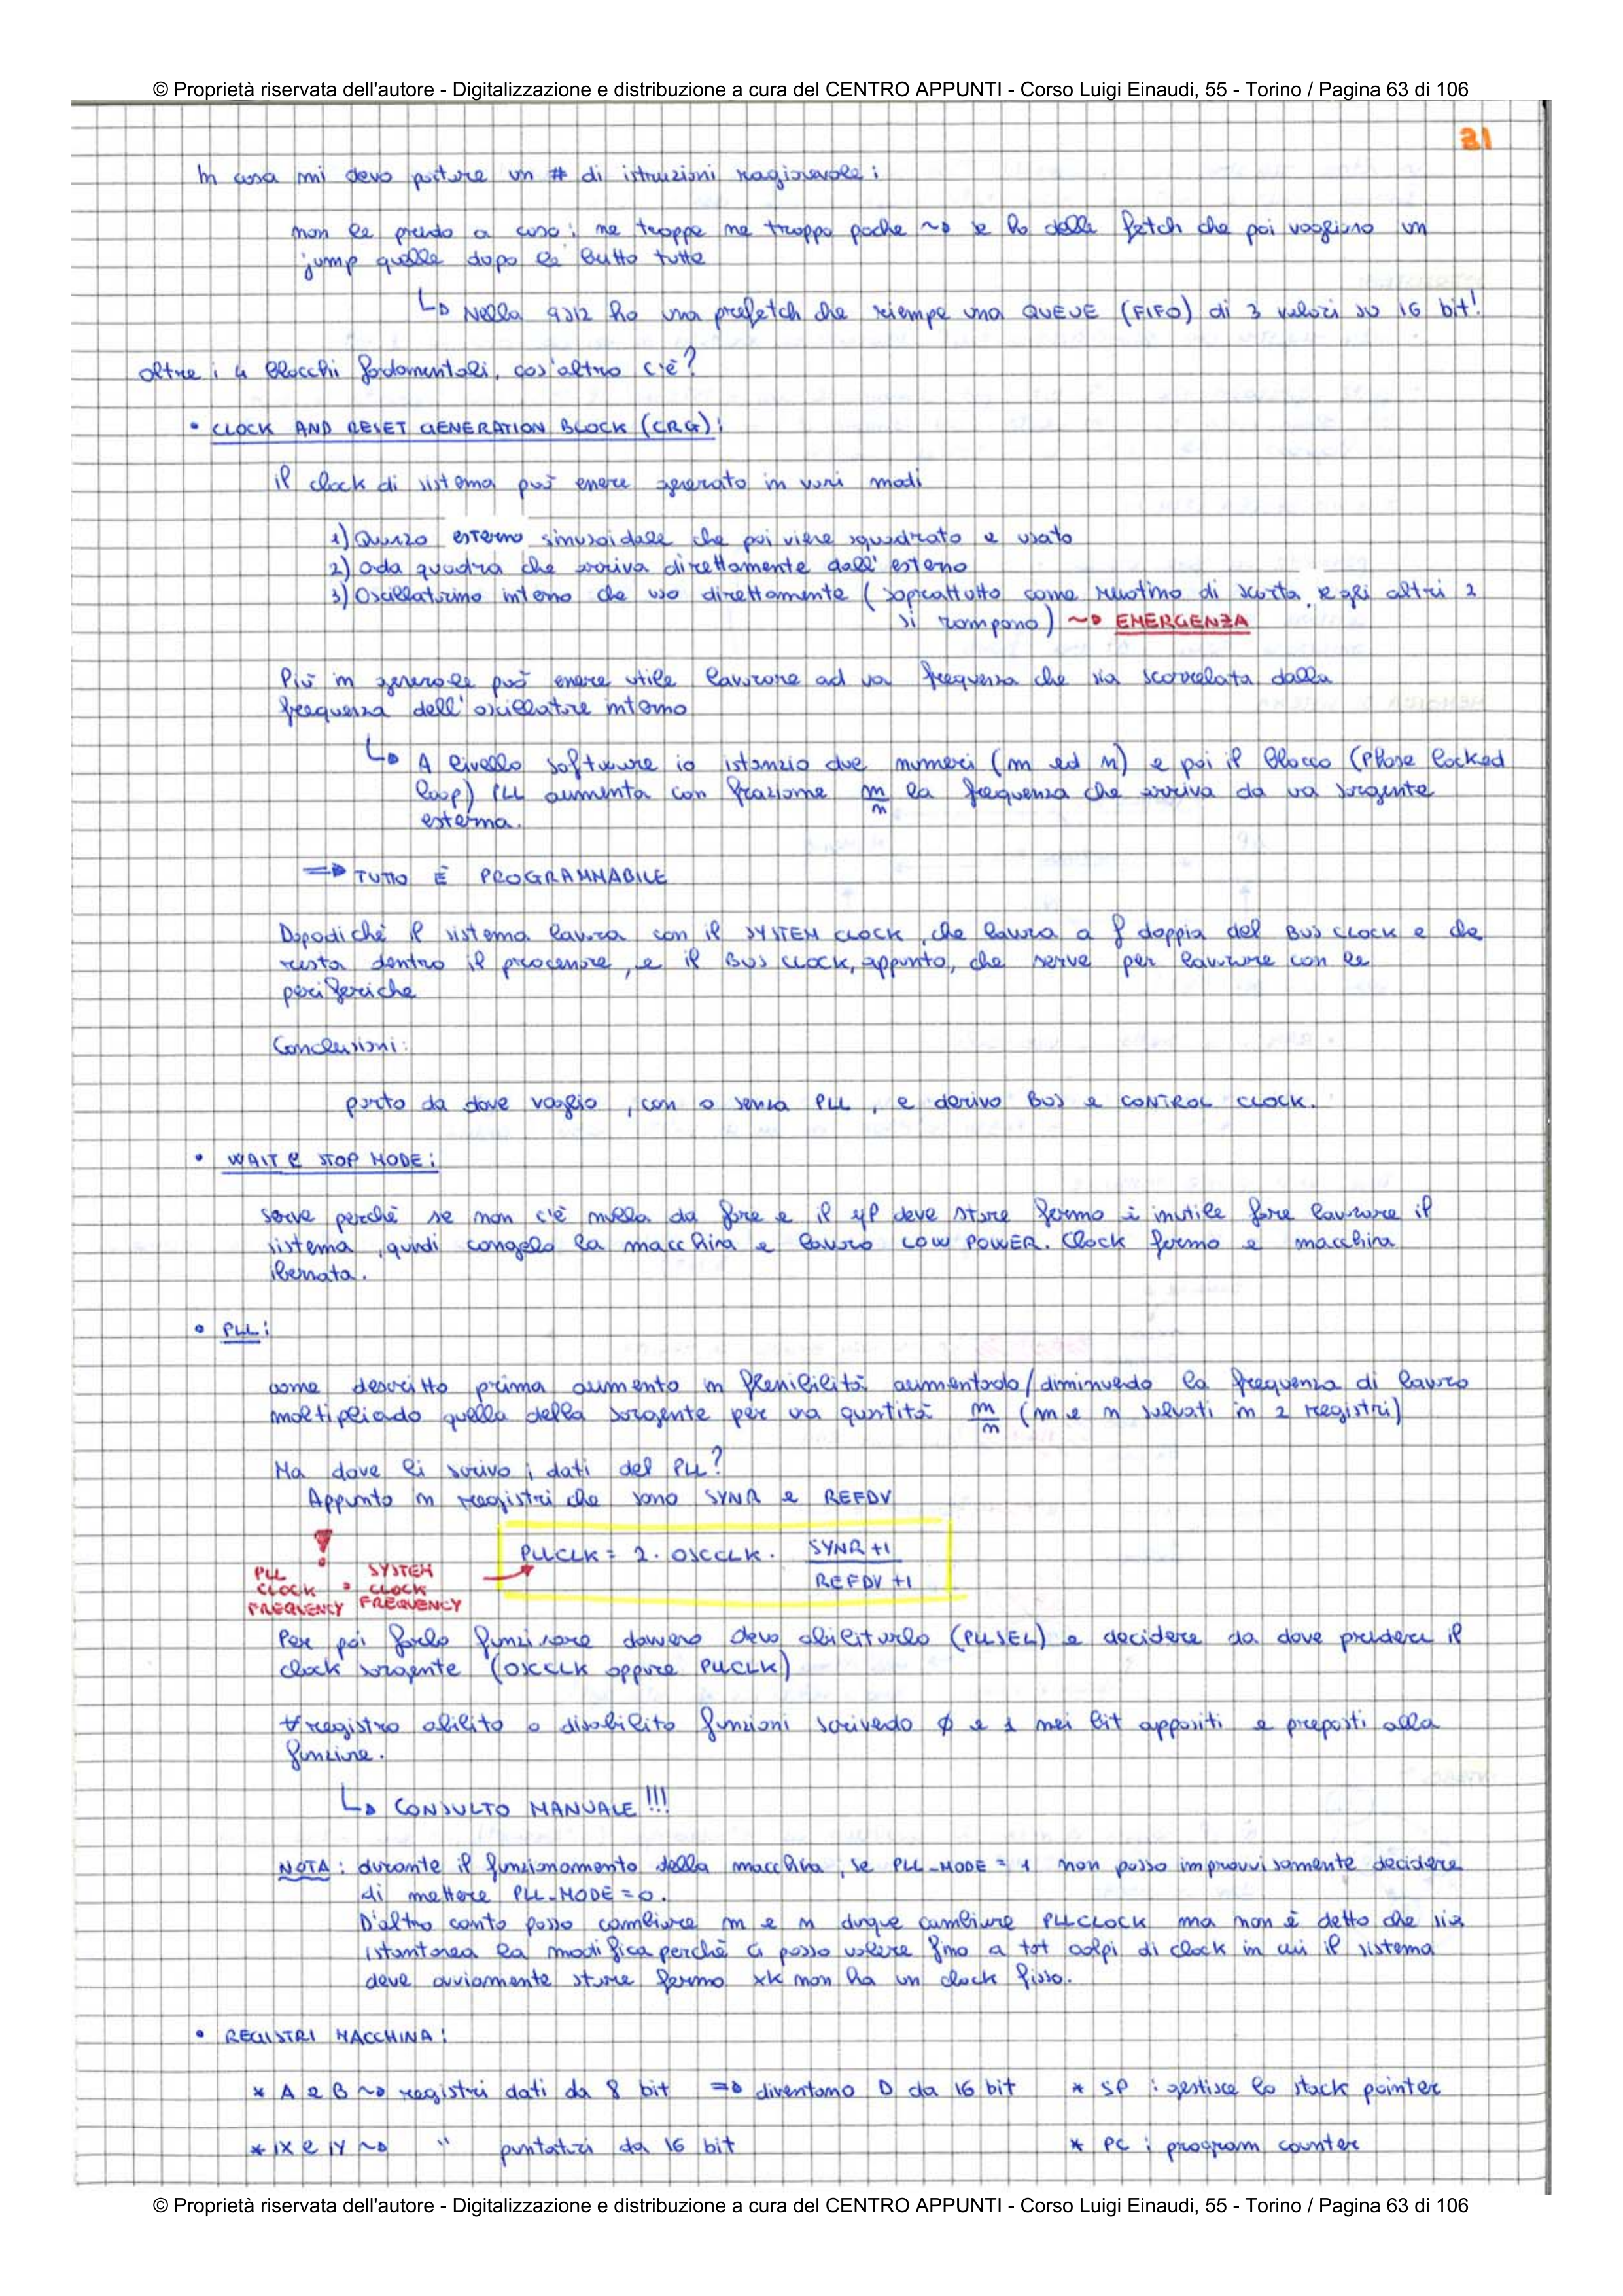 © Proprietà riservata dell'autore - Digitalizzazione e distribuzione a cura del CENTRO APPUNTI - Corso Luigi Einaudi, 55 - Torino / Pagina 63 di 106
31
In cosa mi devo portare un # di istruzioni ragionevole:
non le prendo a caso: ne troppe ne troppo poche ~> se ho delle fetch che poi vogliono un
jump quelle dopo le butto tutte
↳ Nella 9S12 ho una prefetch che riempe una QUEUE (FIFO) di 3 valori su 16 bit!
Oltre i 4 blocchi fondamentali, cos'altro c'è?
• CLOCK AND RESET GENERATION BLOCK (CRG):
il clock di sistema può essere generato in vari modi
1) Quarzo esterno sinusoidale che poi viene squadrato e usato
2) Onda quadra che arriva direttamente dall'esterno
3) Oscillatorino interno che uso direttamente (soprattutto come ruotino di scorta se gli altri 2
si rompono) ~> EMERGENZA
Più in generale può essere utile lavorare ad una frequenza che sia scorrelata dalla
frequenza dell'oscillatore interno
↳ A livello software io istanzio due numeri (m ed n) e poi il blocco (Phase locked
loop) PLL aumenta con frazione m/n la frequenza che arriva da una sorgente
esterna.
=> TUTTO È PROGRAMMABILE
Dopodichè il sistema lavora con il SYSTEM CLOCK, che lavora a f doppia del BUS CLOCK e che
resta dentro il processore, e il BUS CLOCK, appunto, che serve per lavorare con le
periferiche
Conclusioni:
parto da dove voglio, con o senza PLL, e derivo BUS e CONTROL CLOCK.
• WAIT e STOP MODE:
serve perchè se non c'è nulla da fare e il μP deve stare fermo è inutile fare lavorare il
sistema, quindi congelo la macchina e lavoro LOW POWER. Clock fermo e macchina
ibernata.
• PLL:
come descritto prima aumento in flessibilità aumentando/diminuendo la frequenza di lavoro
moltiplicando quella della sorgente per una quntità m/n (m e n salvati in 2 registri)
Ma dove li scrivo i dati del PLL?
Appunto in registri che sono SYNR e REFDV
PLLCLK = 2 · OSCCLK · SYNR+1 / REFDV+1
!
PLL CLOCK FREQUENCY
SYSTEM CLOCK FREQUENCY
Per poi farlo funzionare davvero devo abilitarlo (PLLSEL) e decidere da dove prendere il
clock sorgente (OSCCLK oppure PLLCLK)
∀ registro abilito o disabilito funzioni scrivendo ∅ e 1 nei bit appositi e preposti alla
funzione.
↳ CONSULTO MANUALE!!!
NOTA: durante il funzionamento della macchina, se PLL-MODE = 1 non posso improvvisamente decidere
di mettere PLL-MODE = 0.
D'altro canto posso cambiare m e n dunque cambiare PLLCLOCK ma non è detto che sia
istantanea la modifica perchè ci posso volere fino a tot colpi di clock in cui il sistema
deve ovviamente stare fermo xk non ha un clock fisso.
• REGISTRI MACCHINA:
* A e B ~> registri dati da 8 bit => diventano D da 16 bit * SP: gestisce lo stack pointer
* IX e IY ~> " puntatori da 16 bit * PC: program counter
© Proprietà riservata dell'autore - Digitalizzazione e distribuzione a cura del CENTRO APPUNTI - Corso Luigi Einaudi, 55 - Torino / Pagina 63 di 106